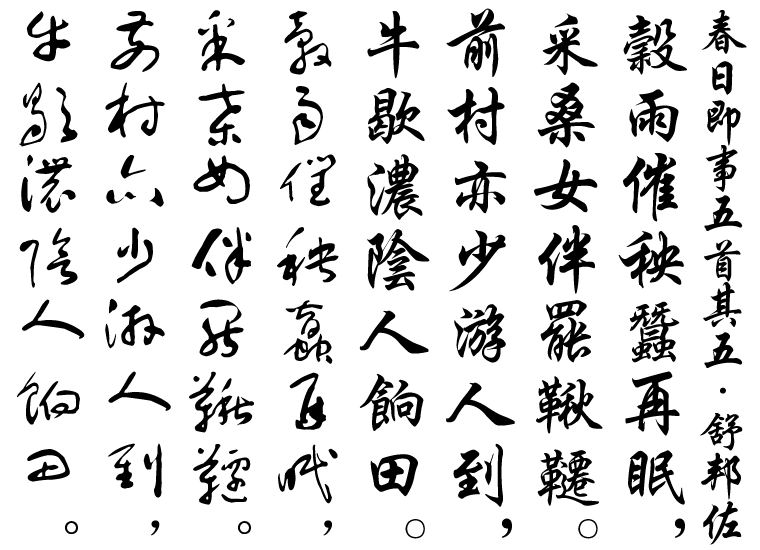 春日即事五首其五·舒邦佐
穀雨催秧蠶再眠，
采桑女伴罷鞦韆。
前村亦少游人到，
牛歇濃陰人餉田。
穀雨催秧蠶再眠，
采桑女伴罷鞦韆。
前村亦少游人到，
牛歇濃陰人餉田。